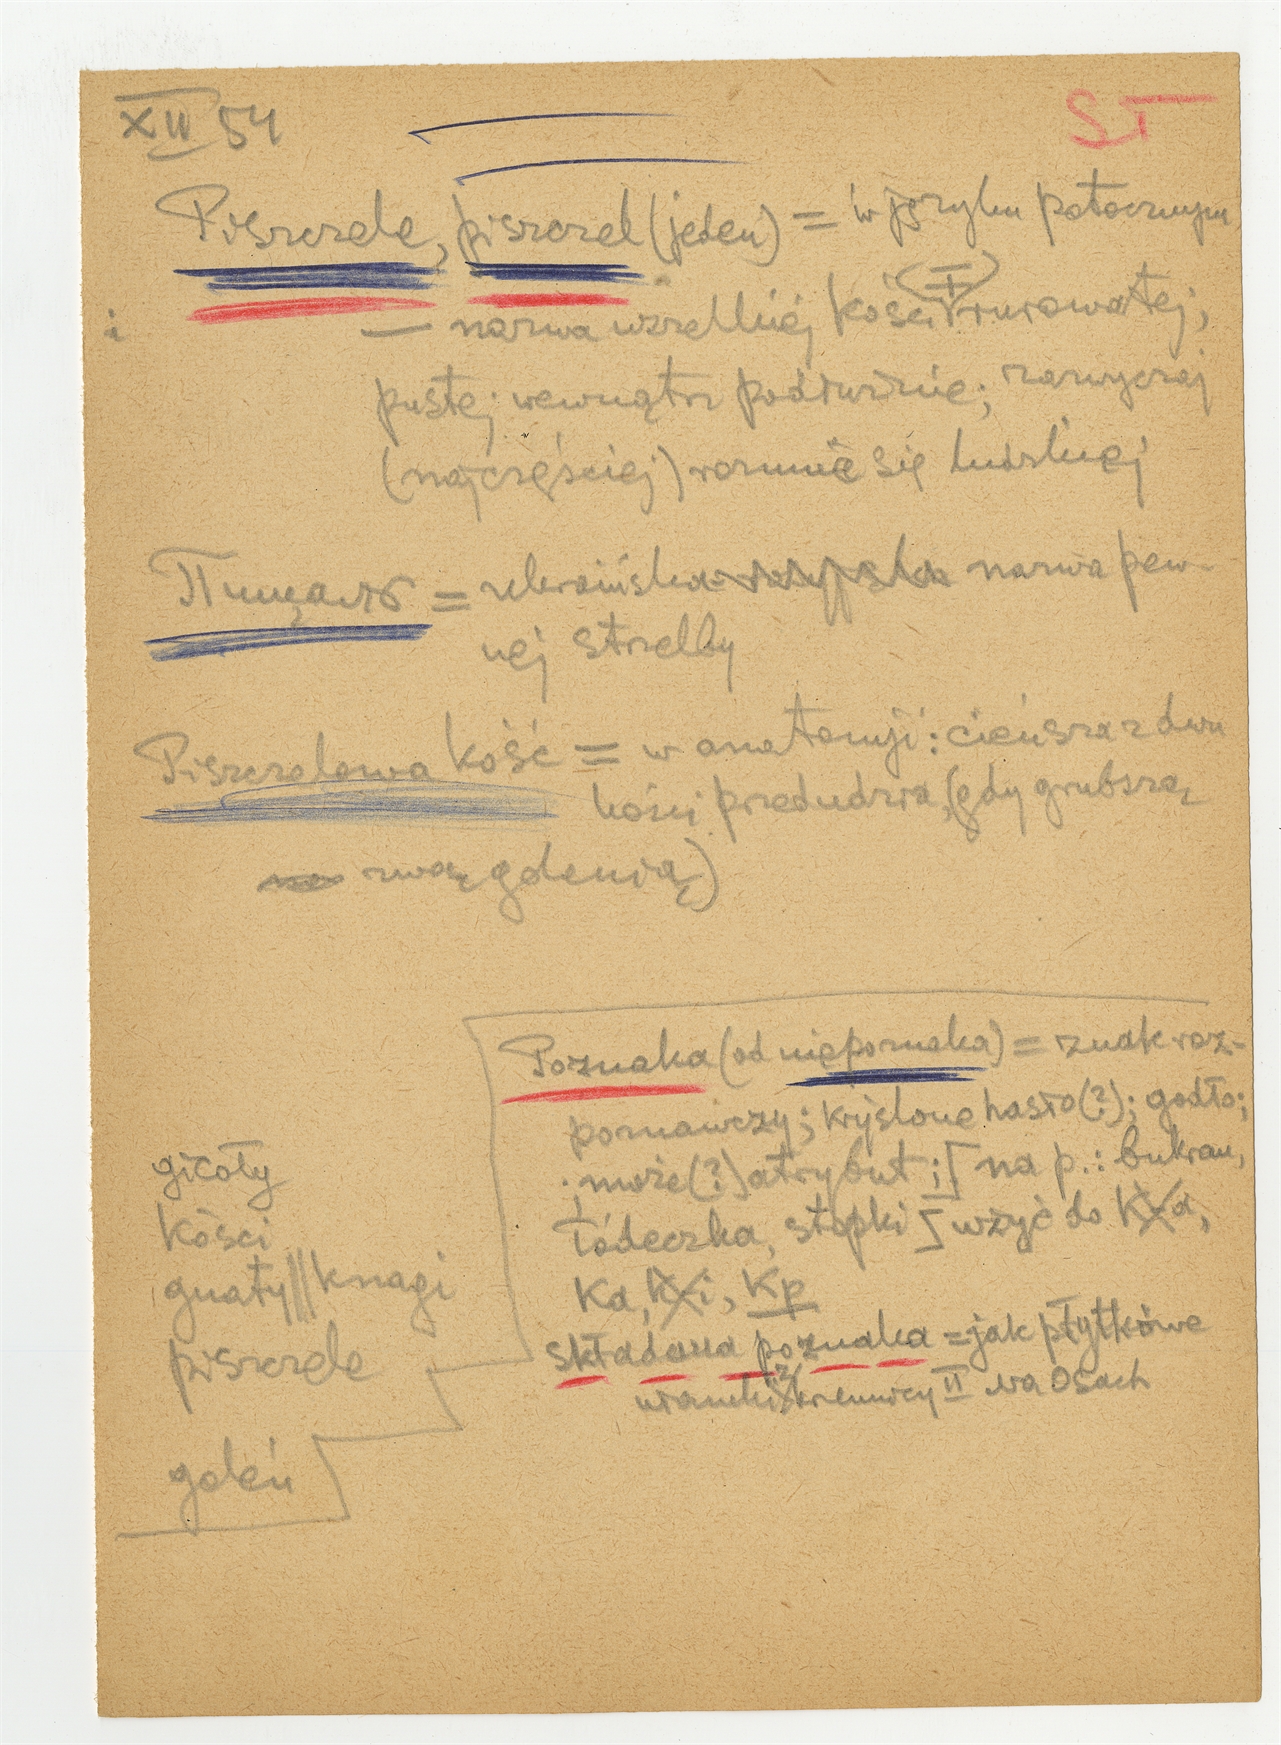 XII 54
ST
Piszczele, piszczel (jeden) = w języku potocznym
i — nazwa wszelkiej kości (±) rurowatej,
pustej wewnątrz podłużnie; zazwyczaj
(najczęściej) rozumie się ludzkiej
Пищаль = ukraińska nazwa pew-
nej strzelby
Piszczelowa kość = w anatomji: cieńsza z dwu
kości przedudzia, (gdy grubszą
zwą golenią)
Poznaka (od niepoznaka) = znak roz-
poznawczy; kryślone hasło (?); godło;
może (?) atrybut; [na p.: bukran,
łódeczka, stopki] wżyć do Kża,
Ka, Kżi, Kp
składana poznaka = jak płytkowe
II na Osach
gicoły
kości
gnaty || knagi
piszczele
goleń